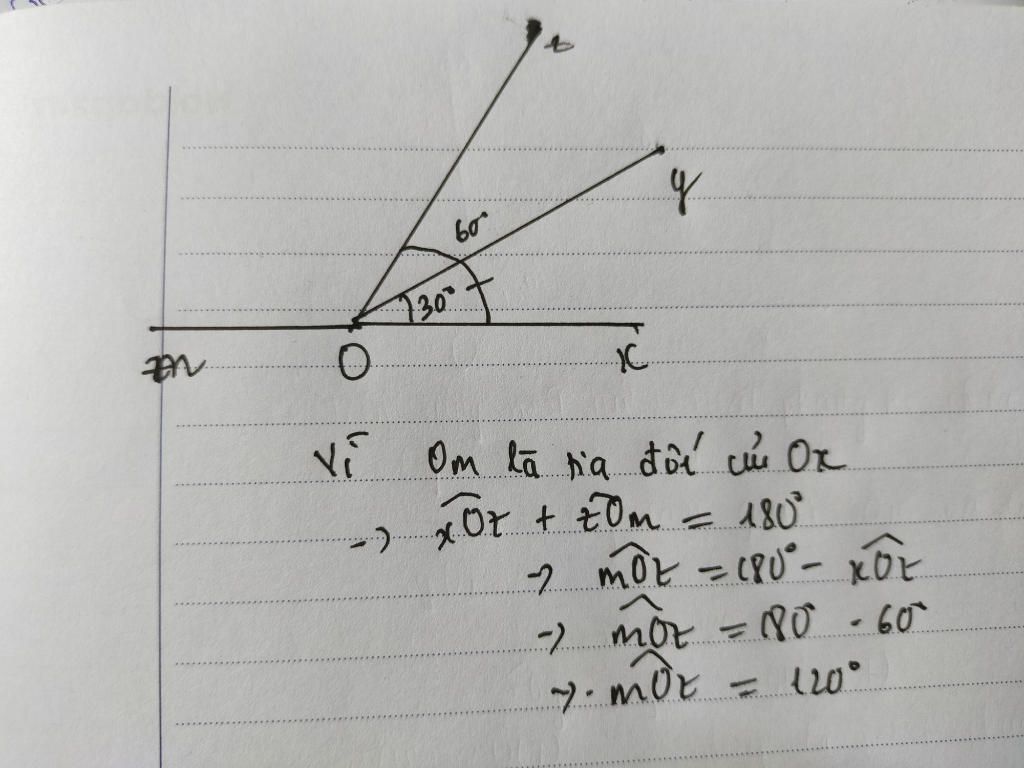 z
y
60°
30°
m
O
x
Vì Om là tia đối của Ox
-> xOz + zOm = 180°
-> mOz = 180° - xOz
-> mOz = 180° - 60°
->. mOz = 120°